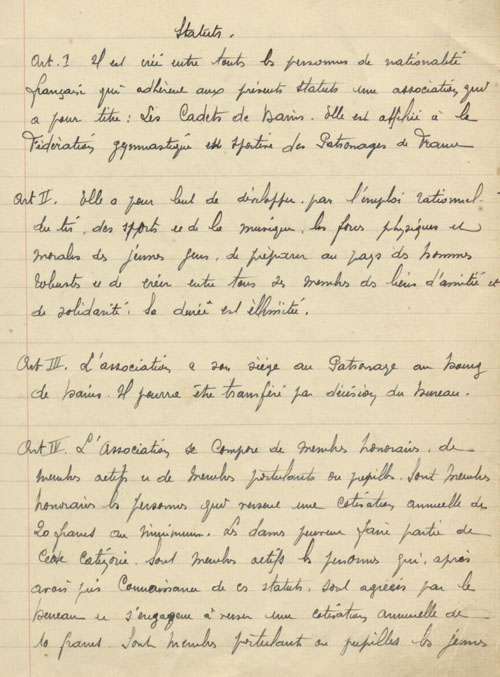 Statuts.
Art. I Il est créé entre toutes les personnes de nationalité
française qui adhèrent aux présents statuts une association qui
a pour titre : Les Cadets de Bains. Elle est affiliée à la
Fédération gymnastique et sportive des Patronages de France
Art II. Elle a pour but de développer par l'emploi rationnel
du tir, des sports et de la musique, les forces physiques et
morales des jeunes gens, de préparer au pays des hommes
robustes et de créer entre tous ses membres des liens d'amitié et
de solidarité. Sa durée est illimitée.
Art III. L'association a son siège au Patronage au bourg
de Bains. Il pourra être transféré par décision du bureau.
Art IV. L'Association se compose de membres honoraires, de
membres actifs et de membres postulants ou pupilles. Sont membres
honoraires les personnes qui versent une cotisation annuelle de
20 francs au minimum. Les dames peuvent faire partie de
cette catégorie. Sont membres actifs les personnes qui, après
avoir pris connaissance de ces statuts, sont agréées par le
bureau et s'engagent à verser une cotisation annuelle de
10 francs. Sont membres postulants ou pupilles les jeunes